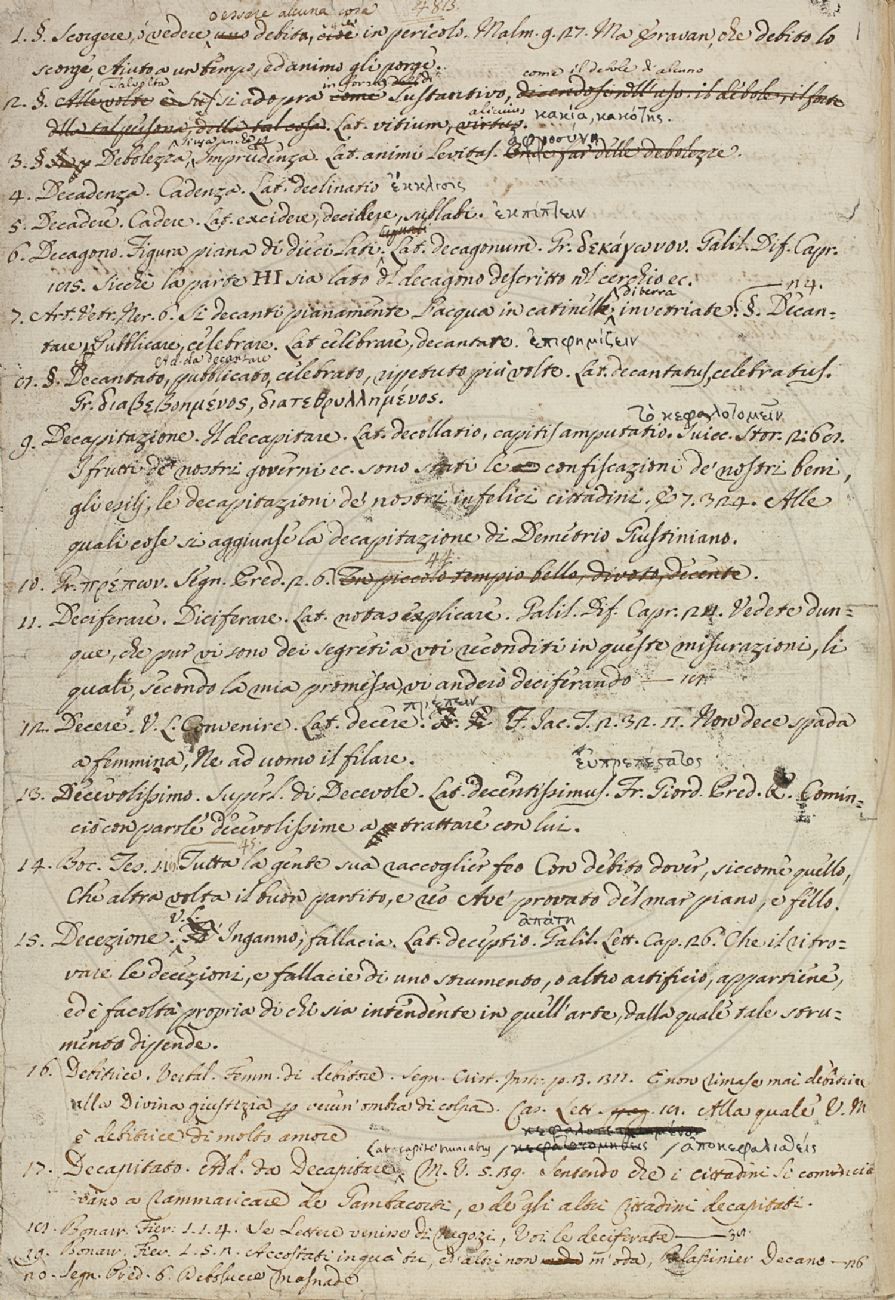 o essere alcuna cosa 483.
1. §. Scorgere, ó vedere uno debito, cioè in pericolo. Malm. 9. 27. Ma Gravan, che debito lo
scorge, Aiuto a un tempo, ed animo gli porge.
Talvolta in forza di come il debole d'alcuno
2. §. Alle volte si adopra come sustantivo, dicendosi nell'uso: il debole, il forte
della tal persona, della tal cosa. Lat. vitium, virtus. alicuius κακία, κακότης.
3. § Debolezza, Imprudenza. Lat. animi levitas. Onde far delle debolezze.
4. Decadenza. Cadenza. Lat. declinatio ἔκκλισις
5. Decadere. Cadere. Lat. excidere, decidere, sublabi. ἐκπίπτειν
6. Decagono. Figura piana di dieci lati. Lat. decagonum. Gr. δεκάγωνον. Galil. Dif. Capr.
185. Sicchè la parte HI sia lato del decagono descritto nel cerchio ec.
di terra 24.
7. Art. Vetr. Ner. 6. Si decanti pianamente l'acqua in catinelle, invetriate. §. Decan-
tare, Pubblicare, celebrare. Lat celebrare, decantare. ἐπιφημίζειν
Ad. da decantare
8. §. Decantato, pubblicato, celebrato, ripetuto più volte. Lat. decantatus, celebratus.
Gr. διαβεβοημένος, διατεθρυλλημένος.
τὸ κεφαλοτομεῖν
9. Decapitazione. Il decapitare. Lat. decollatio, capitis amputatio. Guicc. Stor. 2. 68.
I frutti de' nostri governi ec. sono stati le confiscazioni de' nostri beni,
gli esilj, le decapitazioni de' nostri infelici cittadini. E 7. 324. Alle
quali cose si aggiunse la decapitazione di Demetrio Giustiniano.
44.
10. Gr. πρέπων. Segn. Pred. 2. 6. In piccolo tempio bello, divoto, decente.
11. Deciferare. Diciferare. Lat. notas explicare. Galil. Dif. Capr. 24. Vedete dun-
que, che pur vi sono dei segreti a voi reconditi in queste misurazioni, li
quali, secondo la mia promessa, vi anderò deciferando
πρέπειν
12. Decere. V. L. Convenire. Lat. decere. F. Jac. T. 2. 32. 11. Non dece spada
a femmina, Ne ad uomo il filare.
εὐπρεπέστατος
13. Decevolissimo. Superl. di Decevole. Lat. decentissimus. Fr. Giord. Pred. R. Comin-
ciò con parole decevolissime a trattare con lui.
45
14. Boc. Tes. 11. Tutta la gente sua raccoglier feo Con debito dover, siccome quello,
Che altra volta il buon partito, e reo Ave' provato del mar piano, e fello.
V. L. ἀπάτη
15. Decezione. Inganno, fallacia. Lat. deceptio. Galil. Lett. Cap. 26. Che il ritro-
vare le decezioni, e fallacie di uno strumento, o altro artificio, appartiene,
ed è facoltà propria di chi sia intendente in quell'arte, dalla quale tale stru-
mento dipende.
16. Debitrice. Verbal. Femm. di debitore. Segn. Crist. Instr. p. 13. E non rimase mai debitrice
alla Divina giustizia per verun'ombra di colpa. Car. Lett. Alla quale V. M
è debitrice di molto amore
Lat. capite truncatus κεφαλοτομηθείς / ἀποκεφαλισθείς
17. Decapitato. Add. da Decapitare. M. V. 5. 39. Sentendo che i cittadini si cominciá
vano a rammaricare de Gambacorti, e degli altri Cittadini decapitati.
18. Bonarr. Fier. 1. 1. 4. Se Lettere venisse di negozi, Voi le deciferate
19. Bonarr. Fier. 1. 5. Accostati in qua tu, ed altri non m'oda, Palattinier Decano
20. Segn. Pred. 6. Debolucce masnade